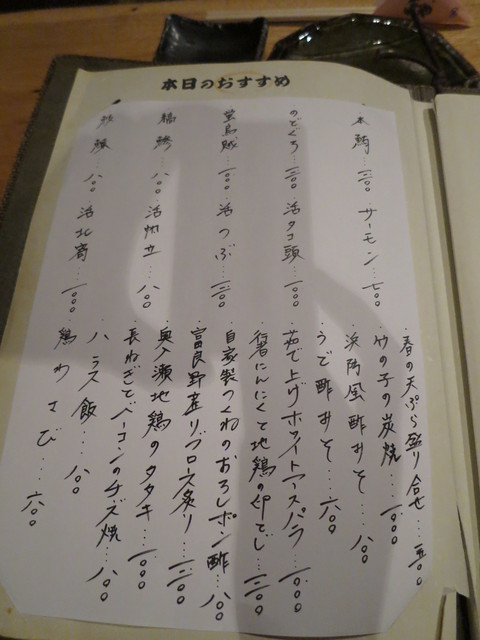 本日のおすすめ
・本鮪…
サーモン…七〇〇
のどぐろ…
活タコ頭…一〇〇〇
活つぶ…
縞鯵…八〇〇
活帆立…八〇〇
八〇〇
活北寄…一〇〇〇
・春の天ぷら盛り合せ…
・竹の子の炭焼…一〇〇〇
・浜防風酢みそ…八〇〇
・うど酢みそ…六〇〇
・茹で上げホワイトアスパラ…一〇〇〇
・行者にんにくと地鶏の卵とじ…
・自家製つくねのおろしポン酢…八〇〇
・富良野産リブロース炙り…
・奥入瀬地鶏のタタキ…一〇〇〇
・長ねぎとベーコンのチーズ焼…八〇〇
・ハラス飯…八〇〇
・鶏わさび…六〇〇